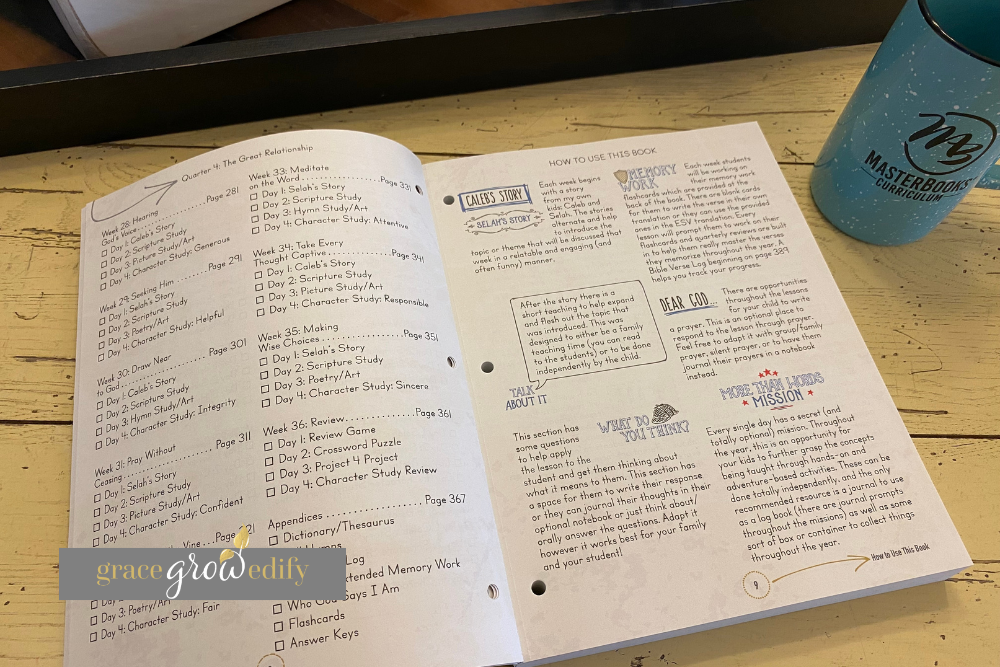 Quarter 4: The Great Relationship
Week 28: Hearing
God's Voice Page 281
Day 1: Caleb's Story
Day 2: Scripture Study
Day 3: Picture Study/Art
Day 4: Character Study: Generous
Week 29: Seeking Him Page 291
Day 1: Selah's Story
Day 2: Scripture Study
Day 3: Poetry/Art
Day 4: Character Study: Helpful
Week 30: Draw Near
to God Page 301
Day 1: Caleb's Story
Day 2: Scripture Study
Day 3: Hymn Study/Art
Day 4: Character Study: Integrity
Week 31: Pray Without
Ceasing Page 311
Day 1: Selah's Story
Day 2: Scripture Study
Day 3: Picture Study/Art
Day 4: Character Study: Confident
Vine
Day 3: Poetry/Art
Day 4: Character Study: Fair
Week 33: Meditate
on the Word Page 331
Day 1: Selah's Story
Day 2: Scripture Study
Day 3: Hymn Study/Art
Day 4: Character Study: Attentive
Week 34: Take Every
Thought Captive Page 341
Day 1: Caleb's Story
Day 2: Scripture Study
Day 3: Picture Study/Art
Day 4: Character Study: Responsible
Week 35: Making
Wise Choices Page 351
Day 1: Selah's Story
Day 2: Scripture Study
Day 3: Poetry/Art
Day 4: Character Study: Sincere
Week 36: Review Page 361
Day 1: Review Game
Day 2: Crossword Puzzle
Day 3: Project 4 Project
Day 4: Character Study Review
Appendices Page 367
Dictionary/Thesaurus
Log
Memory Work
Who God Says I Am
Flashcards
Answer Keys
grace grow edify
HOW TO USE THIS BOOK
CALEB'S STORY
SELAH'S STORY
Each week begins
with a story
from my own
kids: Caleb and
Selah. The stories
alternate and help
to introduce the
topic or theme that will be discussed that
week in a relatable and engaging (and
often funny) manner.
After the story there is a
short teaching to help expand
and flesh out the topic that
was introduced. This was
designed to either be a family
teaching time (you can read
to the students) or to be done
independently by the child.
TALK
ABOUT IT
WHAT DO
YOU THINK?
This section has
some questions
to help apply
the lesson to the
student and get them thinking about
what it means to them. This section has
a space for them to write their response
or they can journal their thoughts in their
optional notebook or just think about/
orally answer the questions. Adapt it
however it works best for your family
and your student!
MEMORY
WORK
Each week students
will be working on
their memory work
flashcards which are provided at the
back of the book. There are blank cards
for them to write the verse in their own
translation or they can use the provided
ones in the ESV translation. Every
lesson will prompt them to work on their
flashcards and quarterly reviews are built
in to help them really master the verses
they memorize throughout the year. A
Bible Verse Log beginning on page 389
helps you track your progress.
DEAR GOD...
There are opportunities
throughout the lessons
for your child to write
a prayer. This is an optional place to
respond to the lesson through prayer.
Feel free to adapt it with group/family
prayer, silent prayer, or to have them
journal their prayers in a notebook
instead.
MORE THAN WORDS
MISSION
Every single day has a secret (and
totally optional) mission. Throughout
the year, this is an opportunity for
your kids to further grasp the concepts
being taught through hands-on and
adventure-based activities. These can be
done totally independently, and the only
recommended resource is a journal to use
as a log book (there are journal prompts
throughout the missions) as well as some
sort of box or container to collect things
throughout the year.
9
How to Use This Book
MB
MASTERBOOKS
CURRICULUM